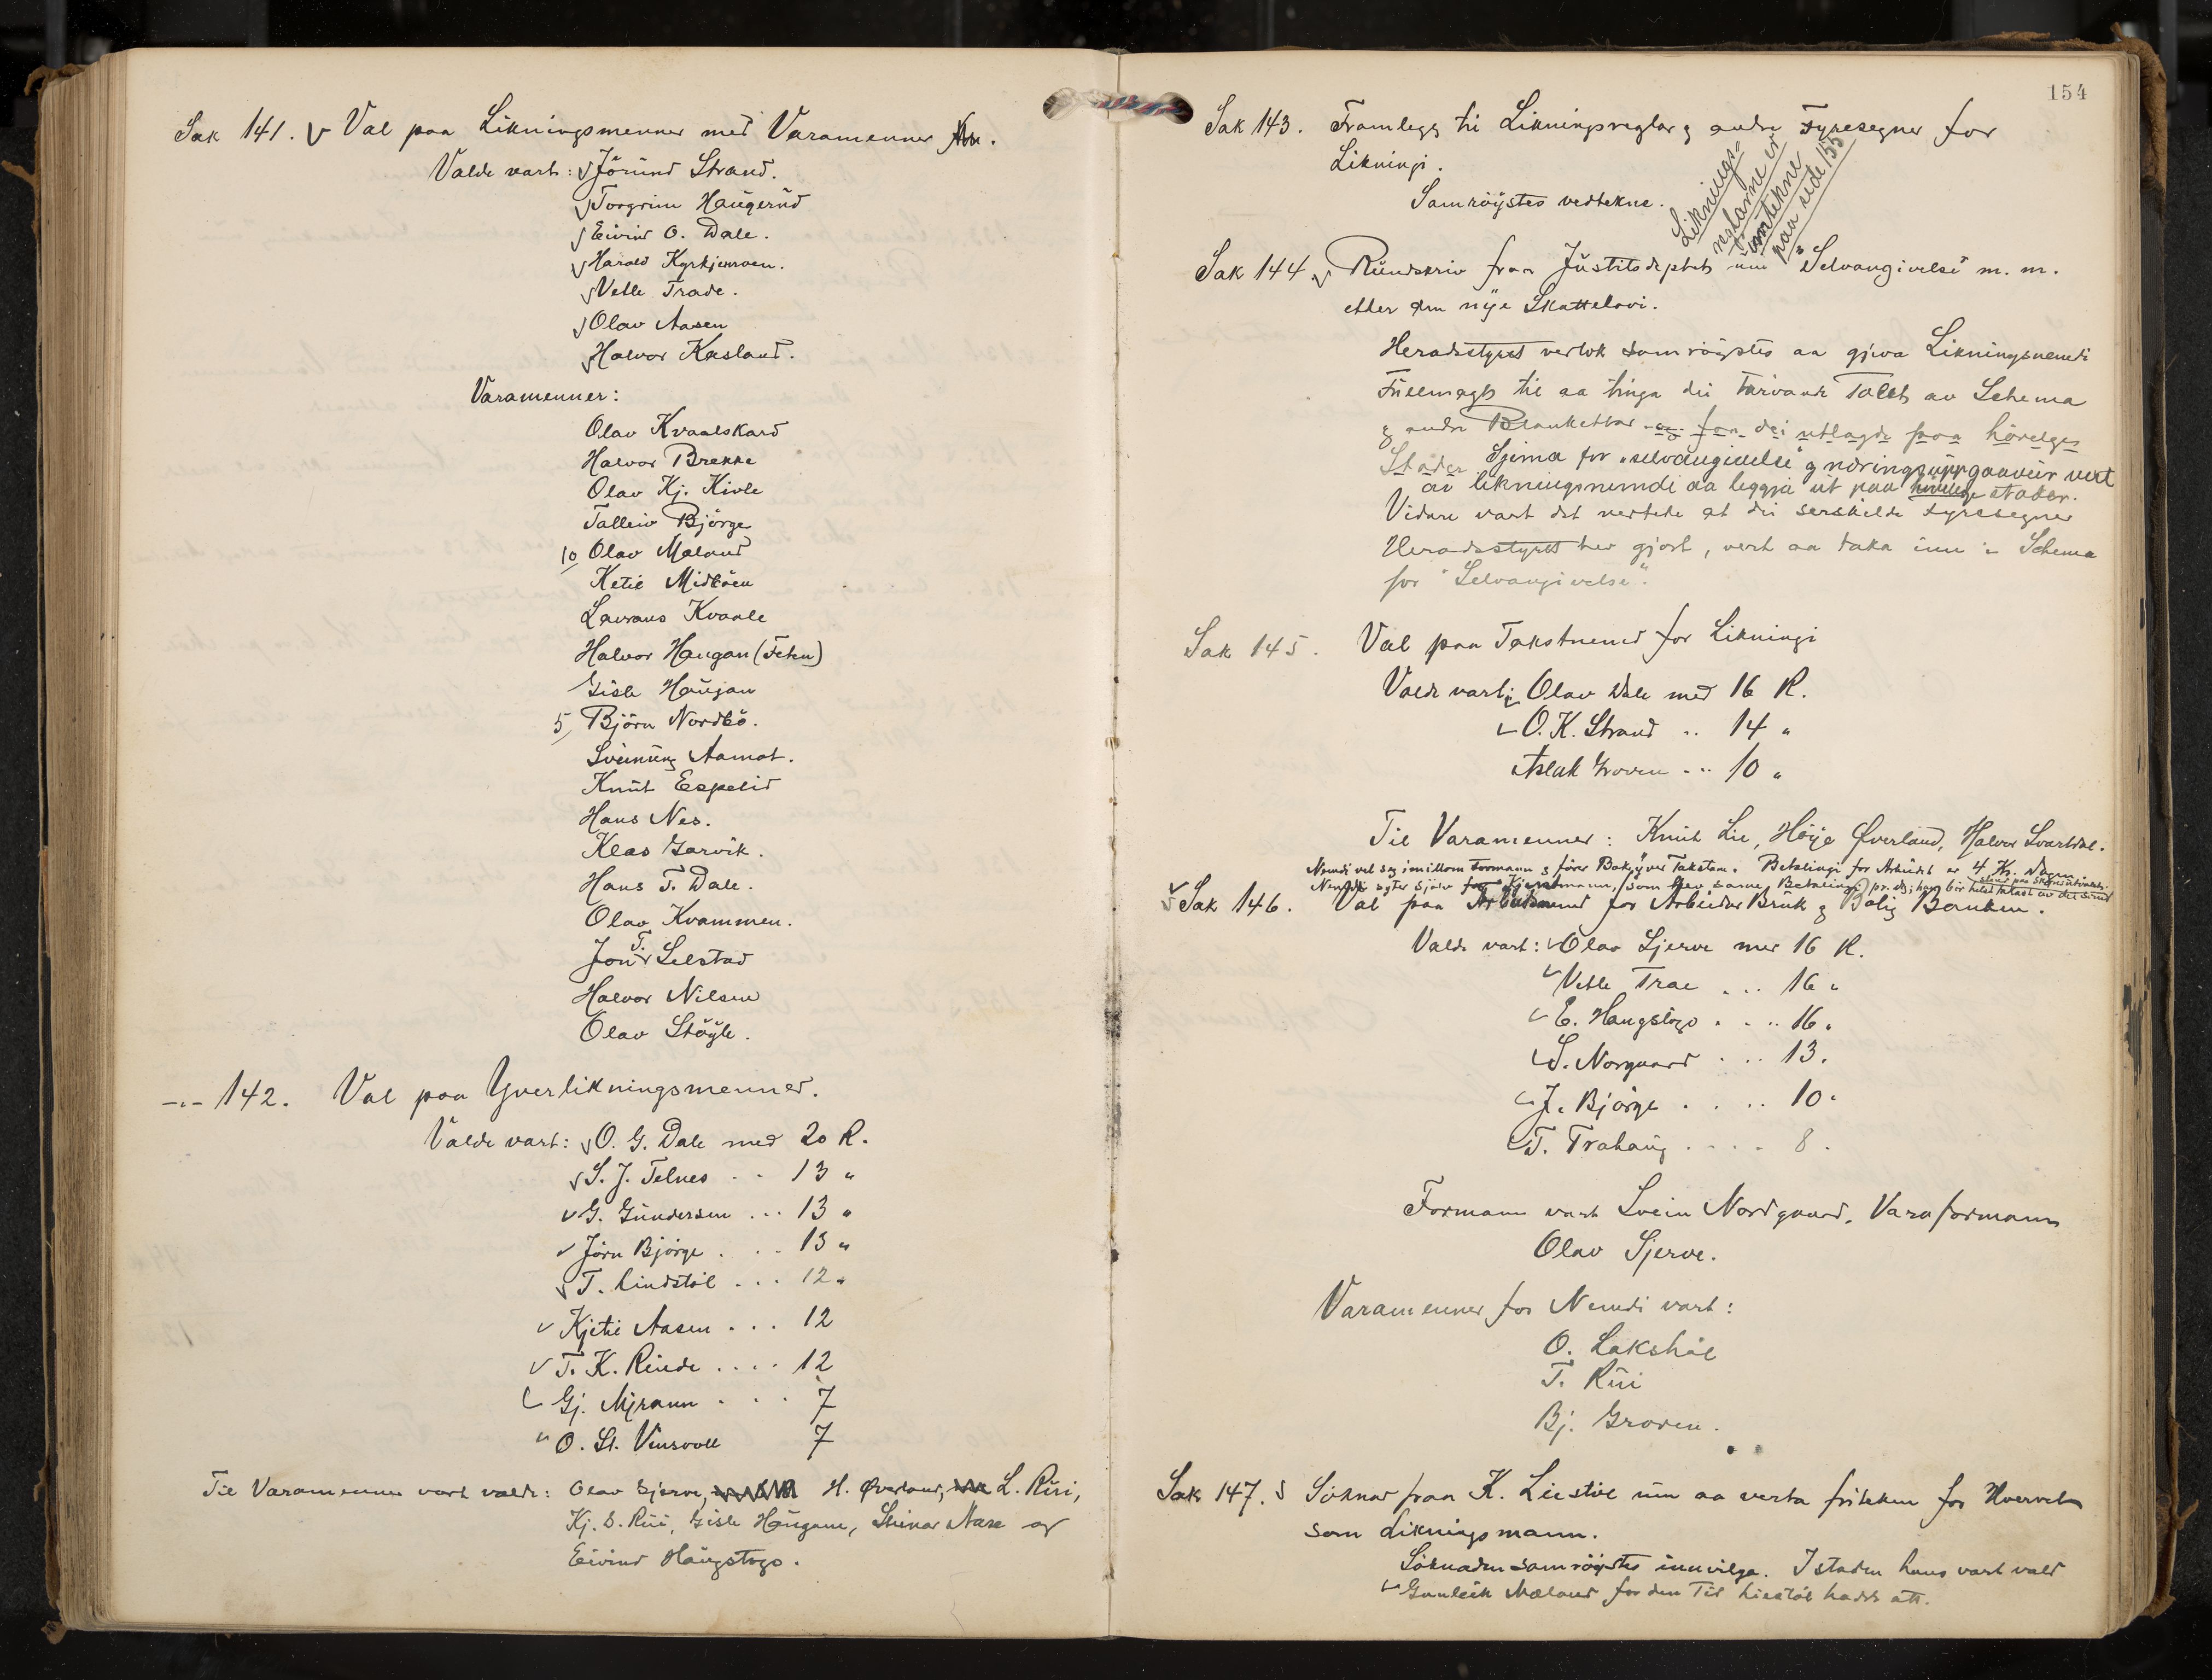 Sak 141. Val paa Likningsmenner med Varamenner
Valde vart: Jörund Strand.
Torgrim Haugerud
Eivind O. Dale.
Harald Kyrkjemoen.
Vetle Trade.
Olav Aasen
Halvor Kasland.
Varamenner:
Olav Kvaalskard
Halvor Brekke
Olav Kj. Kivle
Talleiv Björge
10 Olav Mæland
Ketil Midböen
Lavrans Kvaale
Halvor Haugan (Feten)
Gisle Haugan
5 Björn Nordbö.
Sveinung Aamot.
Knut Espelid
Hans Nes.
Kleas Garvik.
Hans T. Dale.
Olav Kvammen.
Jon T. Selstad
Halvor Nilsen
Olav Stöyle.
-"- 142. Val paa Yverlikningsmenner.
Valde vart: O. G. Dale med 20 R.
S. J. Telnes - - 13 "
G. Gundersen ... 13 "
Jörn Björge . . . 13 "
T. Lindstöl . . . 12 "
Kjetil Aasen . . . 12
T. K. Rinde . . . . 12
Gj. Myrann . . . 7
O. Sl. Vinsvoll 7
Til Varamenner vart valde: Olav Sjerve, H. Øverland, L. Rui,
Kj. S. Rui, Gisle Haugane, Steinar Nase og
Eivind Haugstogo.
154
Sak 143. Framlegg til Likningsreglar og andre Fyresegner for
Likningi.
Samröystes vedtekne.
Liknings=
reglarne er
inntekne
paa side 155
Sak 144 Rundskriv fraa Justitsdeptet um "Selvangivelse" m. m.
etter den nye Skattelovi.
Heradsstyret vertok samröystes aa gjeva Likningsnemdi
Fullmagt til aa tinga dei turvande Talet av Schema
og andre Blankettar og faa dei utlagde paa hövelege
Stader Sjema for "selvangivelse" og næringsuppgaavur vert
av likningsnemdi aa leggja ut paa hövelege stader.
Vidare vart det verteke at dei serskilde fyresegner
Heradsstyret hev gjort, vert aa taka inn i Schema
for "Selvangivelse".
Sak 145. Val paa Takstnemd for Likningi
Valde vart: Olav Dale med 16 R.
O. K. Strand .. 14 "
Aslak Groven ... 10 "
Til Varamenner: Knut Lie, Höije Øverland, Halvor Svartdal.
Nemdi vel seg imillom Formann og förer Bok yver Takstane. Betalingi for Arbeidet er 4 Kr. Dagen.
Sak 146. Val paa Arbeidsnemd for Arbeidar Bruk og Bolig Banken.
Valde vart: Olav Sjerve med 16 R.
Vetle Trae . .. 16 "
E. Haugstogo . . .. 16 "
S. Norgaard . .. 13.
J. Björge . . .. 10 "
T. Trahaug . . . . 8.
Formann vart Svein Nordgaard, Varaformann
Olav Sjerve.
Varamenner for Nemdi vart:
O. Lakshöl
T. Rui
Bj. Groven.
Sak 147. Söknad fraa K. Liestöl um aa verta friteken for Hvervet
som Likningsmann.
Söknaden samröystes innvilga. I staden hans vart vald
Gunleik Mæland for den Tid Liestöl hadde att.